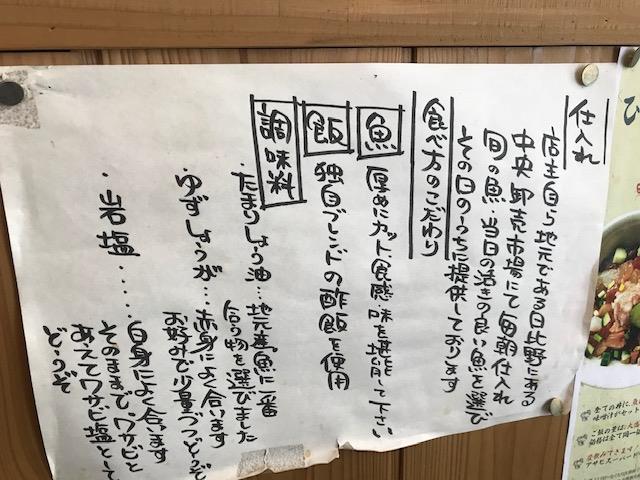 仕入れ
店主自ら地元である日比野にある
中央卸売市場にて毎朝仕入れ
旬の魚・当日の活きの良い魚を選び
その日のうちに提供しております
食べ方のこだわり
魚 厚めにカット、食感、味を堪能して下さい
飯 独自ブレンドの酢飯を使用
調味料
・たまりしょう油…地元産、魚に一番
合う物を選びました
・ゆずしょうが…赤身によく合います
お好みで少量づつどうぞ
・岩塩‥‥‥白身によく合います
そのままで、ワサビと
あえてワサビ塩として
どうぞ
ひ
全ての丼に、
味噌汁がセット
ご飯の量は
価格は全て同一
昼飲みできます
アサヒスーパード